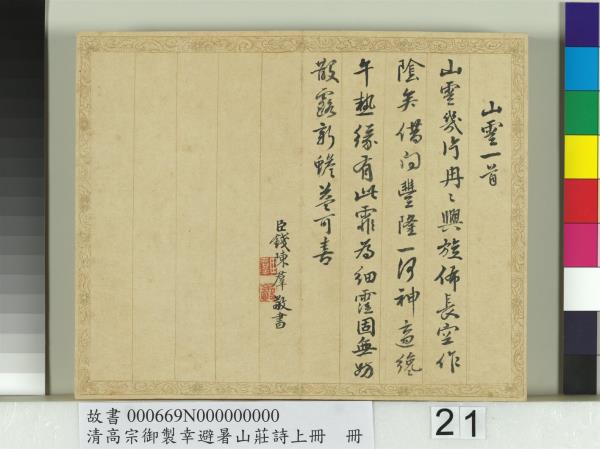 山雲一首
山雲幾片冉冉興旋佈長空作
陰矣借問豐隆一何神蓋纔
午熱緣有此霏為細霔固無妨
散露新蟾益可喜
臣錢陳羣敬書
故書 000669N000000000
清高宗御製幸避暑山莊詩上冊 冊
21